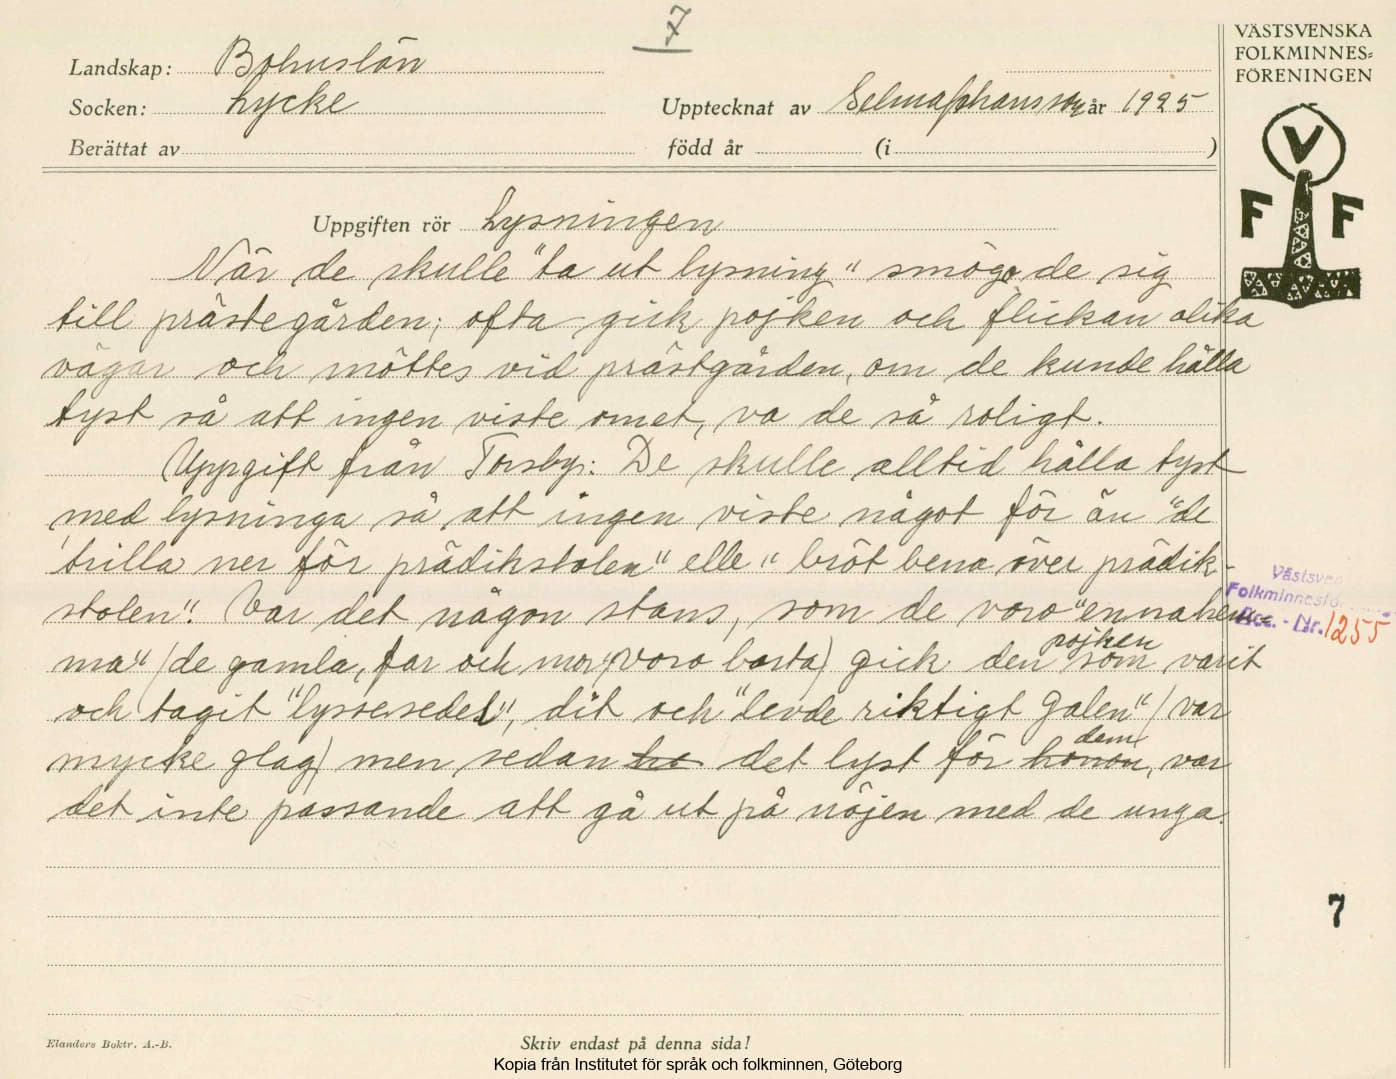 7
VÄSTSVENSKA
FOLKMINNES=
FÖRENINGEN
V
F F
Landskap: Bohuslän
Socken: Lycke
Upptecknat av Selma Johansson år 1925
Berättat av född år (i )
Uppgiften rör Lysningen
När de skulle "ta ut lysning" smögo de sig
till prästegården; ofta gick pojken och flickan olika
vägar och möttes vid prästgården, om de kunde hålla
tyst så att ingen viste omet, va de så roligt.
Uppgift från Torsby: De skulle alltid hålla tyst
med lysninga så att ingen viste något för än "de
trilla ner för prädikstolen" elle "bröt bena över prädik-
stolen". Var det någon stans, som de voro "ennahem-
ma" (de gamla, far och mor, voro borta) gick den pojken som varit
och tagit "lyssesedel", dit och "levde riktigt galen" (var
mycke glag) men sedan det lyst för honom dem, var
det inte passande att gå ut på nöjen med de unga.
Västsven
Folkminnesför
Acc. - Nr. 1255
7
Elanders Boktr. A.-B.
Skriv endast på denna sida!
Kopia från Institutet för språk och folkminnen, Göteborg